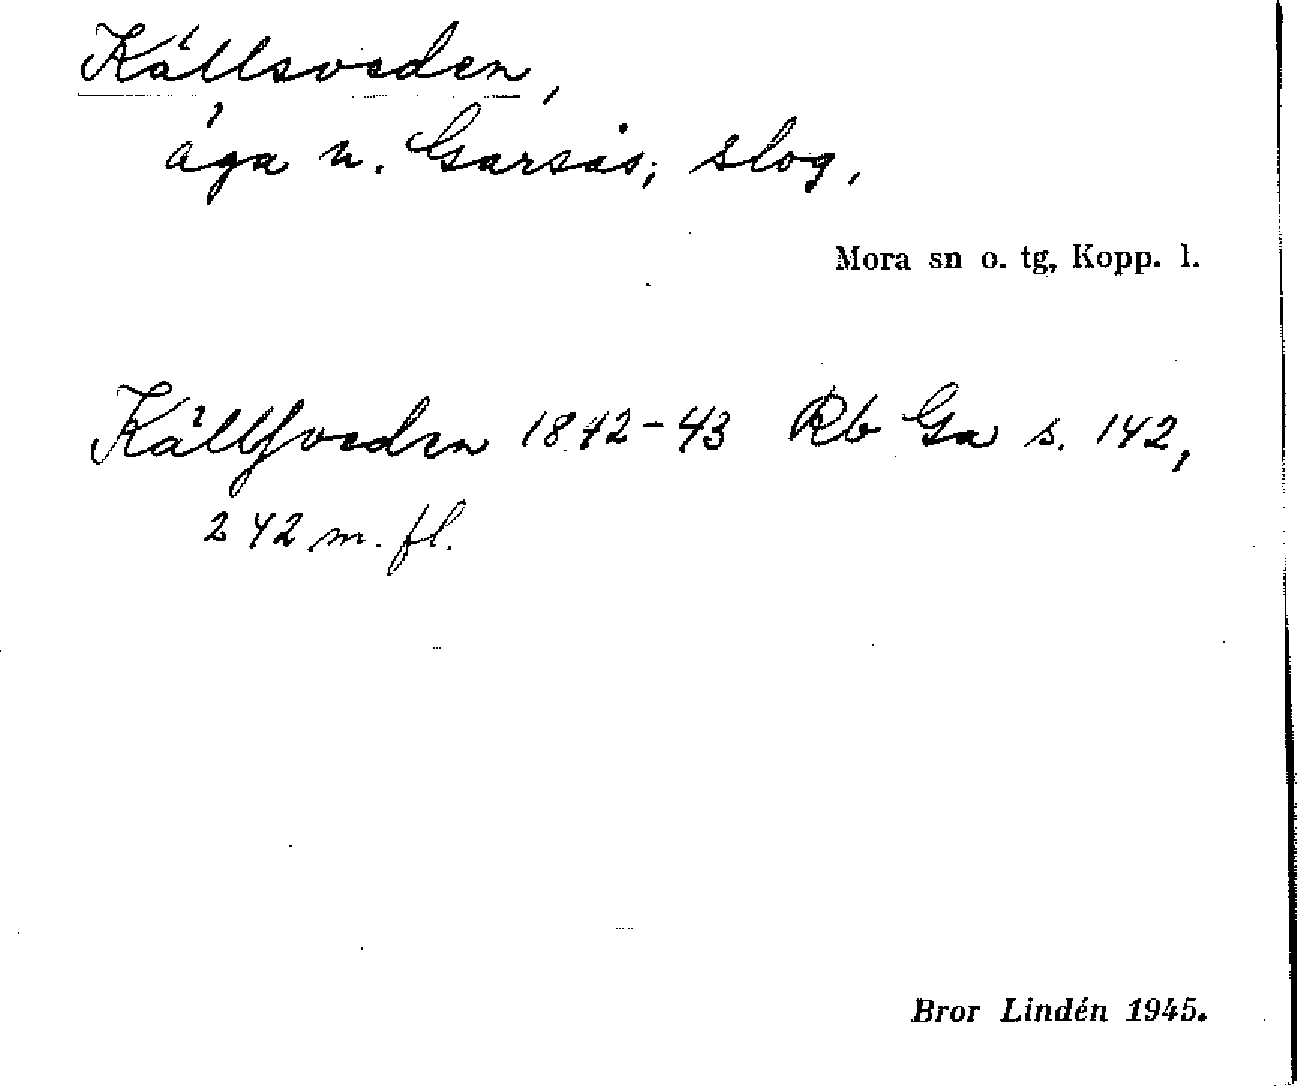 Källsveden,
äga n. Garsås; slog,
Mora sn o. tg, Kopp. l.
Källſveden 1842-43 Rb Ga s. 142,
242 m. fl.
Bror Lindén 1945.